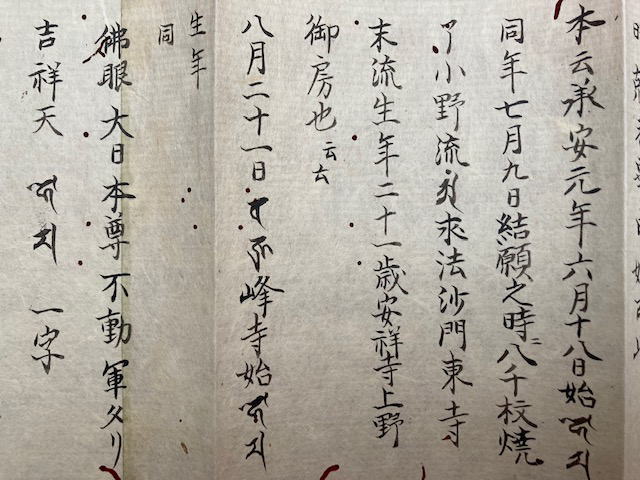 本云承安元年六月十八日始
同年七月九日結願之時ニ八千枚焼
了小野流 求法沙門東寺
末流生年二十一歳安祥寺上野
御房也云云
八月二十一日 峰寺始
生年
同
佛眼大日本尊不動軍タリ
吉祥天 一字